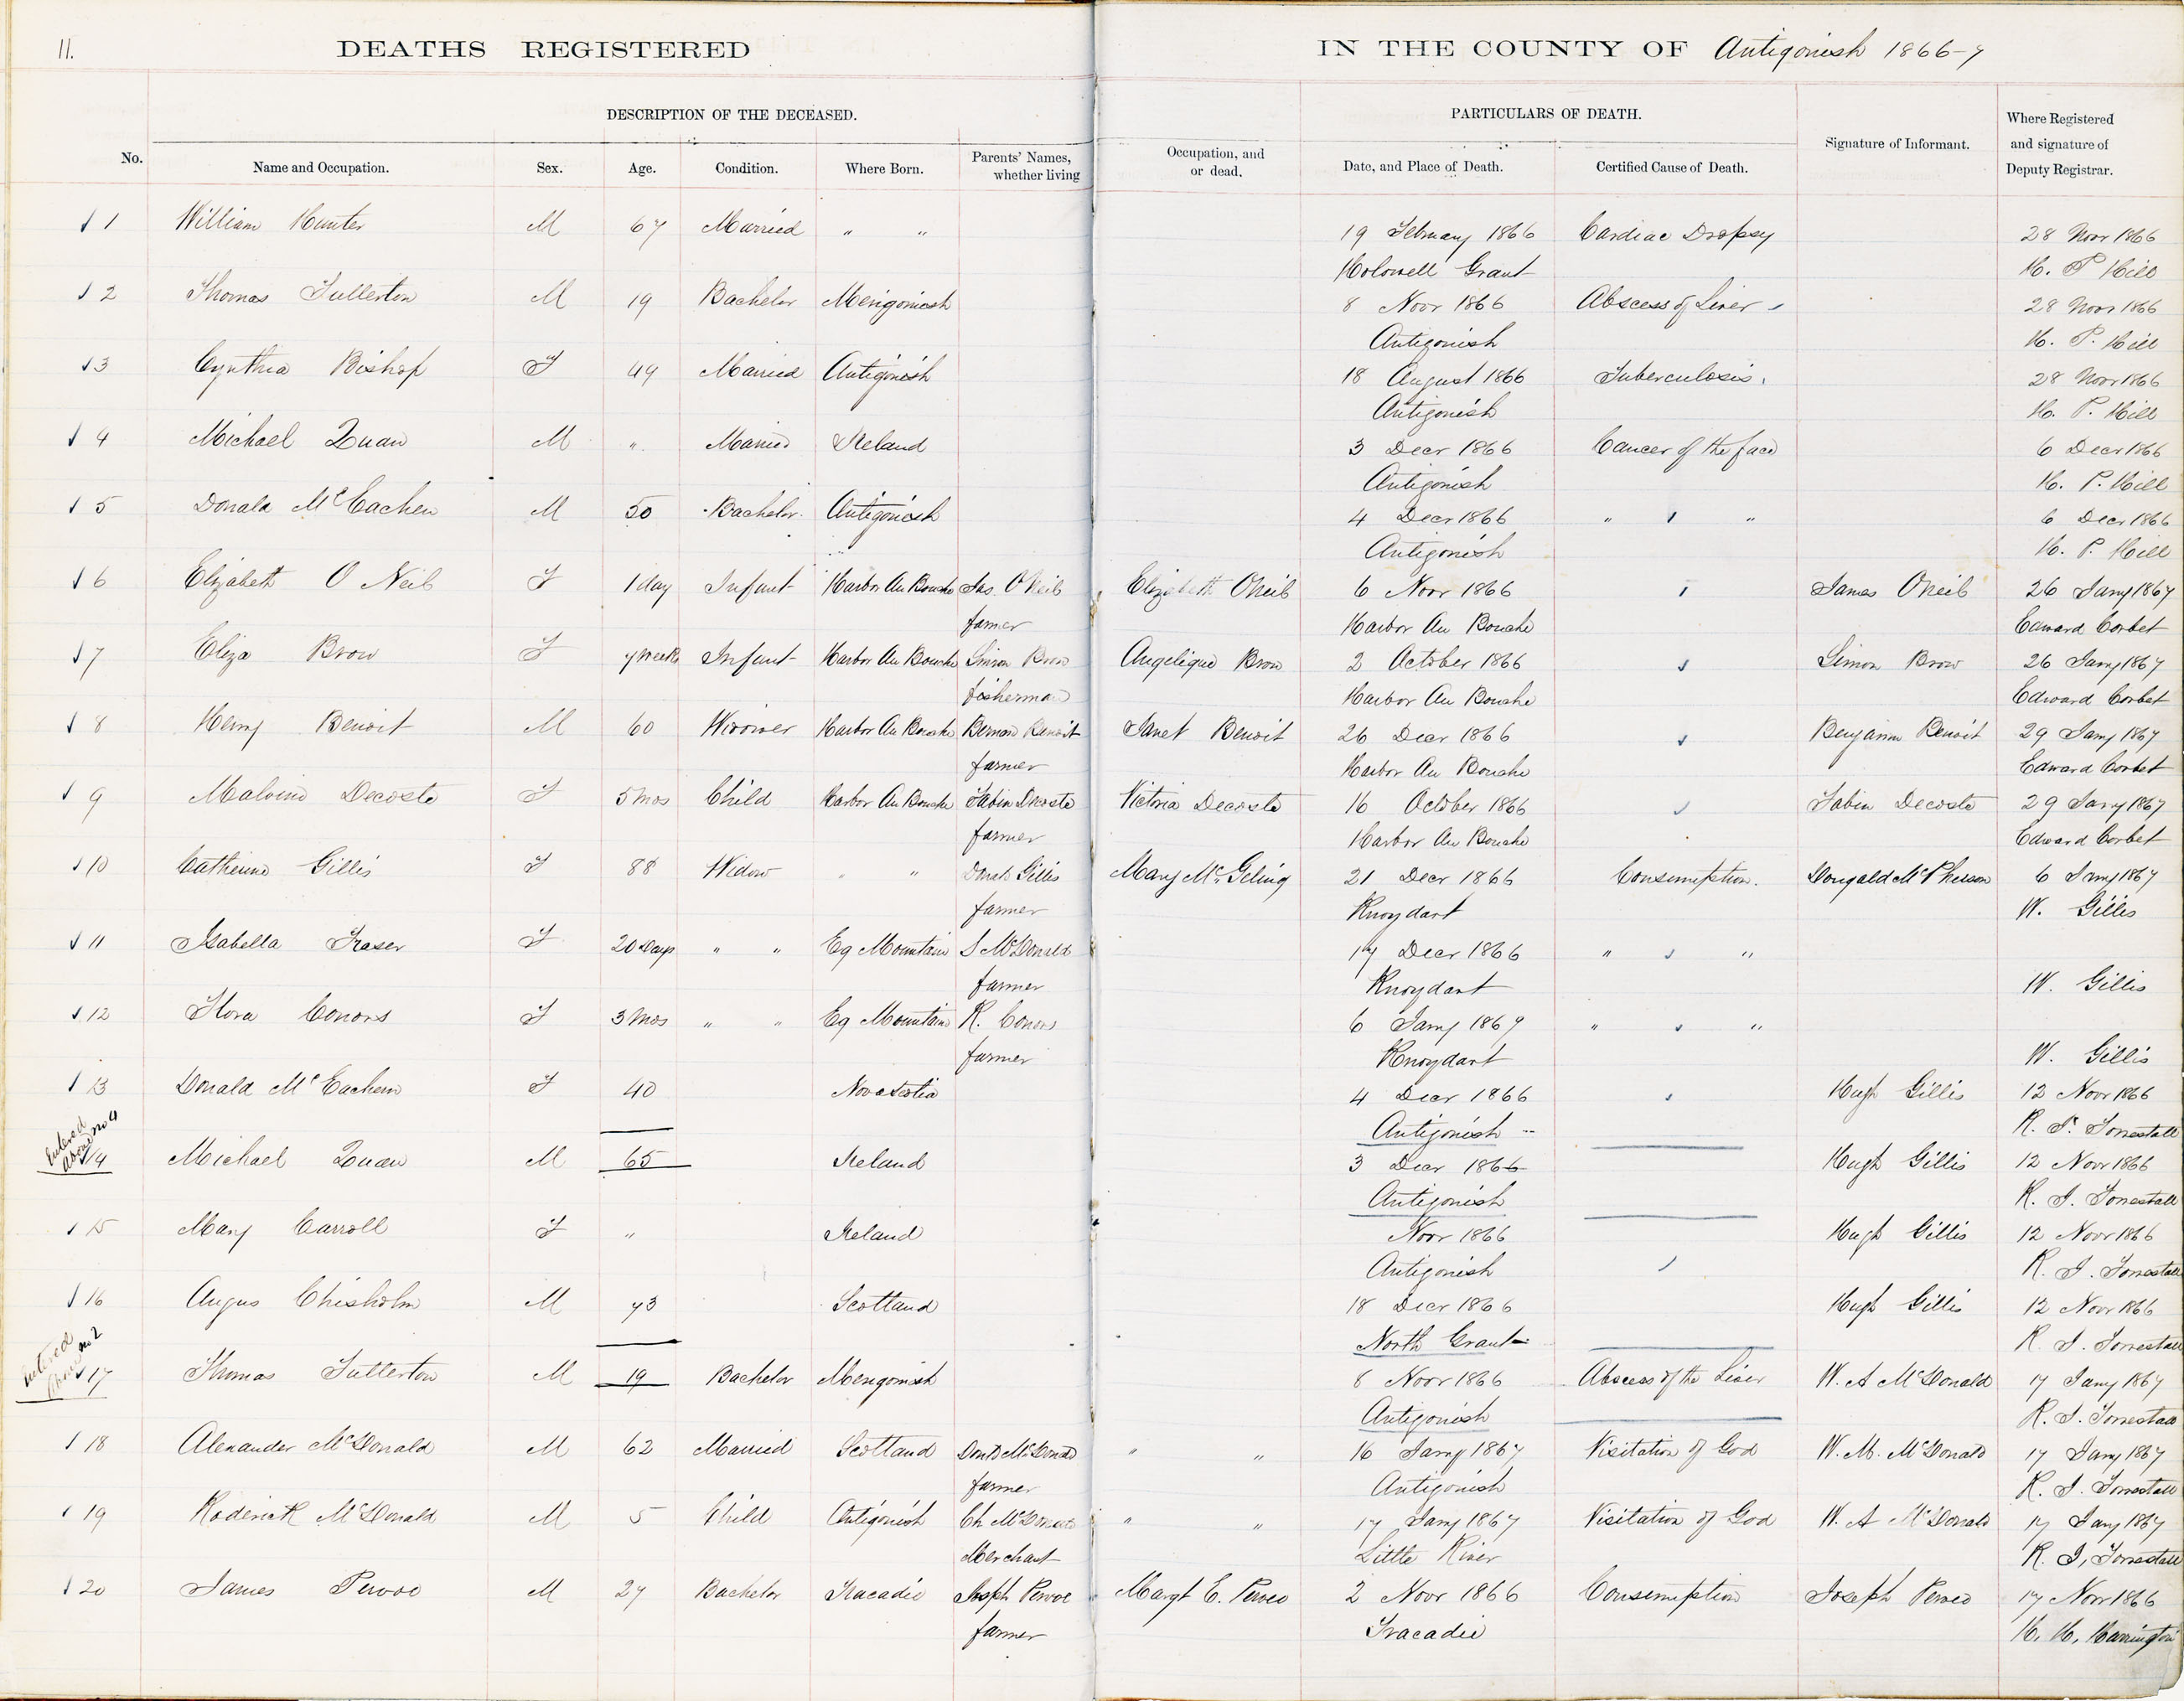 11.
DEATHS REGISTERED IN THE COUNTY OF Antigonish 1866-7
DESCRIPTION OF THE DECEASED. PARTICULARS OF DEATH.
No. Name and Occupation. Sex. Age. Condition. Where Born. Parents' Names, whether living Occupation, and or dead. Date, and Place of Death. Certified Cause of Death. Signature of Informant. Where Registered and signature of Deputy Registrar.
1 William Hunter M 67 Married " " 19 February 1866 Cardiac Dropsy 28 Novr 1866
Grant H. P. Hill
2 Thomas Fullerton M 19 Bachelor Merigonish 8 Novr 1866 Abscess of Liver 28 Novr 1866
Antigonish H. P. Hill
3 Cynthia Bishop F 49 Married Antigonish 18 August 1866 Tuberculosis. 28 Novr 1866
Antigonish H. P. Hill
4 Michael Quan M " Married Ireland 3 Decr 1866 Cancer of the face 6 Decr 1866
Antigonish H. P. Hill
5 Donald McEachen M 50 Bachelor. Antigonish 4 Decr 1866 " " 6 Decr 1866
Antigonish H. P. Hill
6 Elizabeth O Neil F 1 day Infant Harbor Au Bouche Jas. O'Neil Elizabeth O'Neil 6 Novr 1866 James O'Neil 26 Jany 1867
farmer Harbor Au Bouche Edward Corbet
7 Eliza Brow F 7 weeks Infant Harbor Au Bouche Simon Brow Angelique Brow 2 October 1866 Simon Brow 26 Jany 1867
fisherman Harbor Au Bouche Edward Corbet
8 Henry Benoit M 60 Widower Harbor Au Bouche Bernard Benoit Janet Benoit 26 Decr 1866 Benjamin Benoit 29 Jany 1867
farmer Harbor Au Bouche Edward Corbet
9 Malvina Decoste F 5 mos Child Harbor Au Bouche Fabin Decoste Victoria Decoste 16 October 1866 Fabin Decoste 29 Jany 1867
farmer Harbor Au Bouche Edward Corbet
10 Catherine Gillis F 88 Widow " " Donald Gillis Mary 21 Decr 1866 Consumption. Dougald McPherson 6 Jany 1867
farmer Knoydart W. Gillis
11 Isabella Fraser F 20 Days " " Eg Mountain S McDonald 17 Decr 1866 " "
farmer Knoydart W. Gillis
12 Flora Conors F 3 mos " " Eg Mountain R. Conors 6 Jany 1867 " "
farmer Knoydart W. Gillis
13 Donald McEachern F 40 Nova Scotia 4 Decr 1866 Hugh Gillis 12 Novr 1866
Antigonish R. J. Forrestall
Entered above no 4
14 Michael Quan M 65 Ireland 3 Decr 1866 Hugh Gillis 12 Novr 1866
Antigonish R. J. Forrestall
15 Mary Carroll F " Ireland Novr 1866 Hugh Gillis 12 Novr 1866
Antigonish R. J. Forrestall
16 Angus Chisholm M 73 Scotland 18 Decr 1866 Hugh Gillis 12 Novr 1866
North Grant R. J. Forrestall
Entered above no 2
17 Thomas Fullerton M 19 Bachelor Merigonish 8 Novr 1866 Abscess of the Liver W. A McDonald 17 Jany 1867
Antigonish R. J. Forrestall
18 Alexander McDonald M 62 Married Scotland Dond McDonald " " 16 Jany 1867 Visitation of God W. M. McDonald 17 Jany 1867
farmer Antigonish R. J. Forrestall
19 Roderick McDonald M 5 Child Antigonish Ch McDonald " " 17 Jany 1867 Visitation of God W. A McDonald 17 Jany 1867
Merchant Little River R. J. Forrestall
20 James Pervoe M 27 Bachelor Tracadie Joseph Pervoe Margt E. Pervoe 2 Novr 1866 Consumption Joseph Pervoe 17 Novr 1866
farmer Tracadie H. H. Harrington